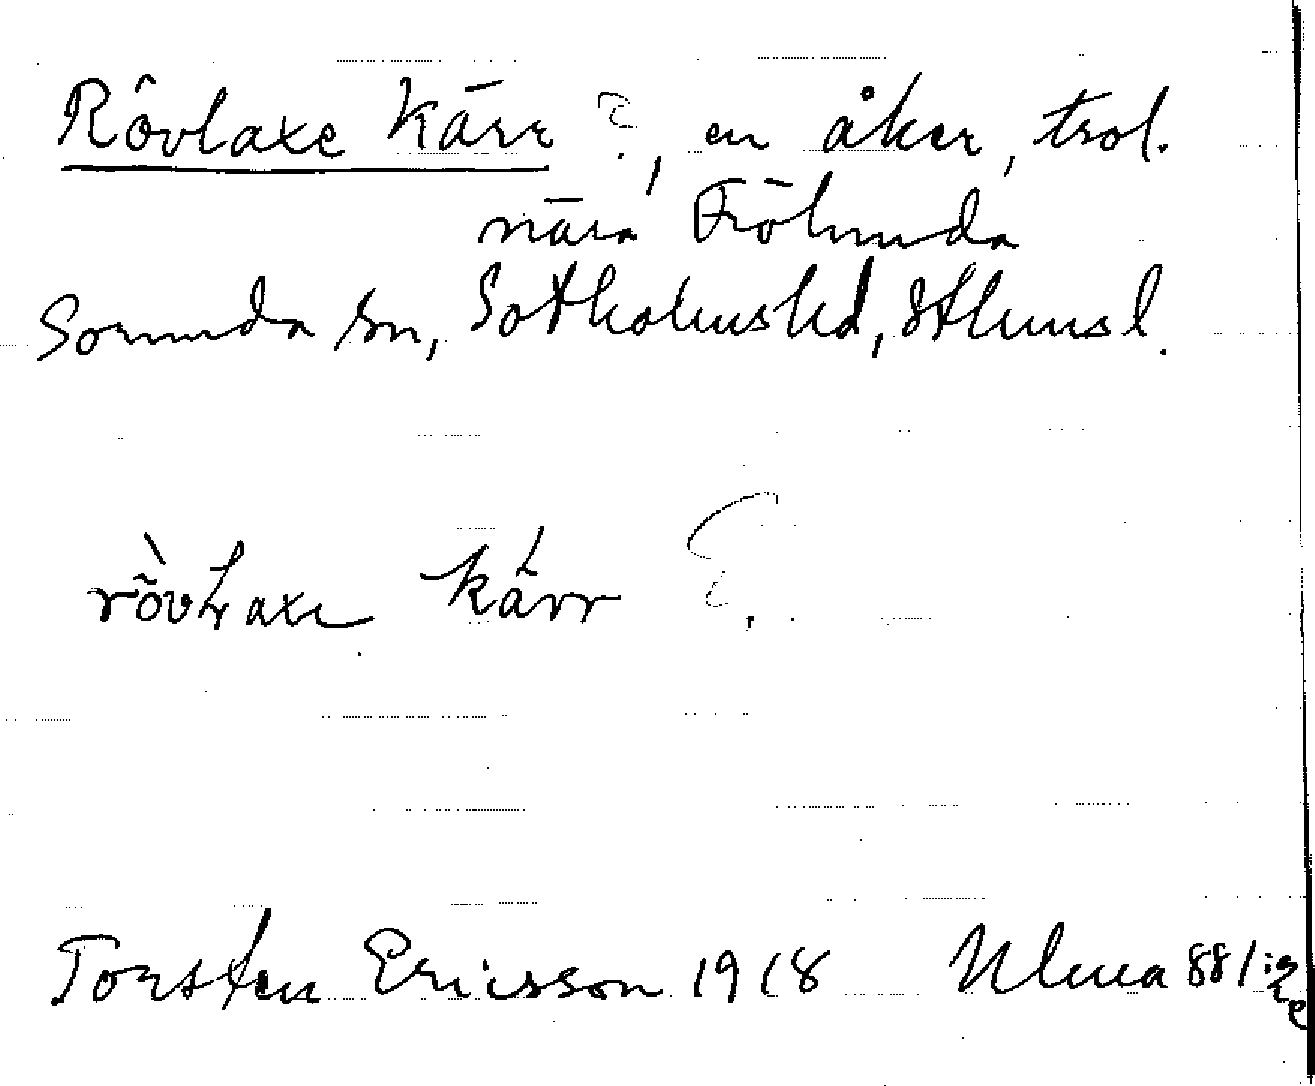 Rövlaxe Kärr ?, en åker, trol.
nära Fröhunda
Sorunda sn, Sotholms hd, Sthmsl.
rövlaxe kärr ?
Torsten Ericsson 1918 Ulma 88/